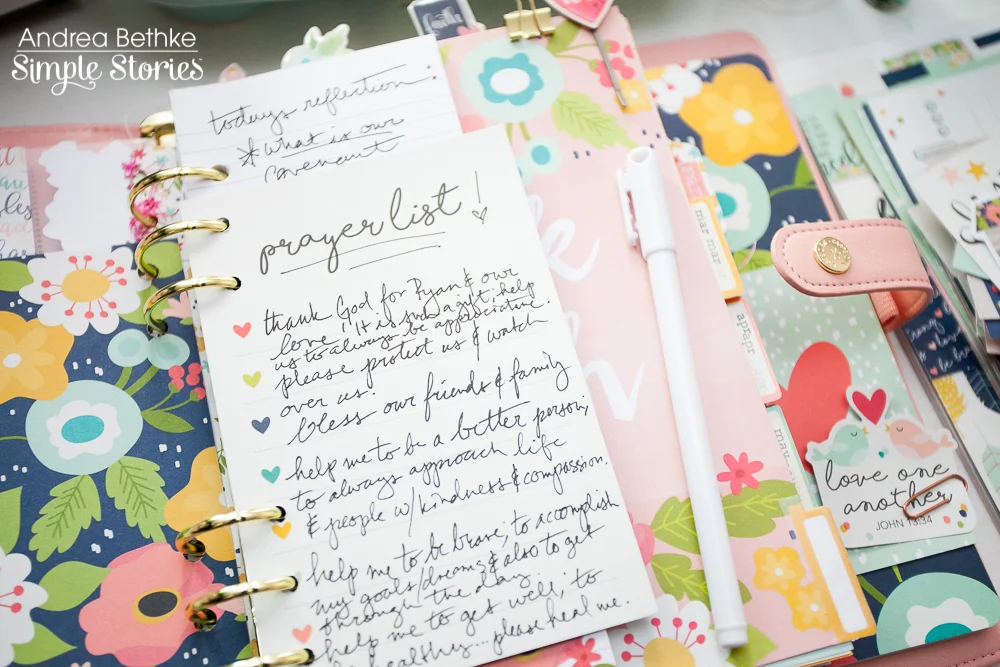 Andrea Bethke
Simple Stories
todays reflection:
* what is our
covenant
prayer list!
thank God for Ryan & our
love! It is such a gift; help
us to always be appreciative.
please protect us & watch
over us.
bless our friends & family
help me to be a better person;
to always approach life
& people w/kindness & compassion.
help me to be brave; to accomplish
my goals/dreams & also to get
through the day.
help me to get well; to
be healthy... please heal me.
mar mar
aprapr
may
love one
another
JOHN 13:34